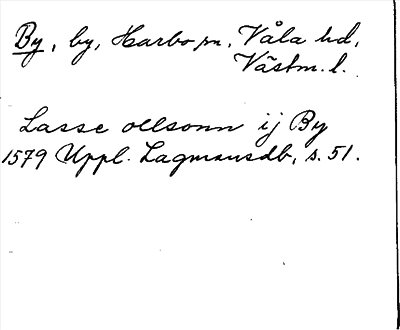 By, by, Harbo sn, Våla hd,
Västm. l.
Lasse ollsonn ij By
1579 Uppl. Lagmansdb, s. 51.